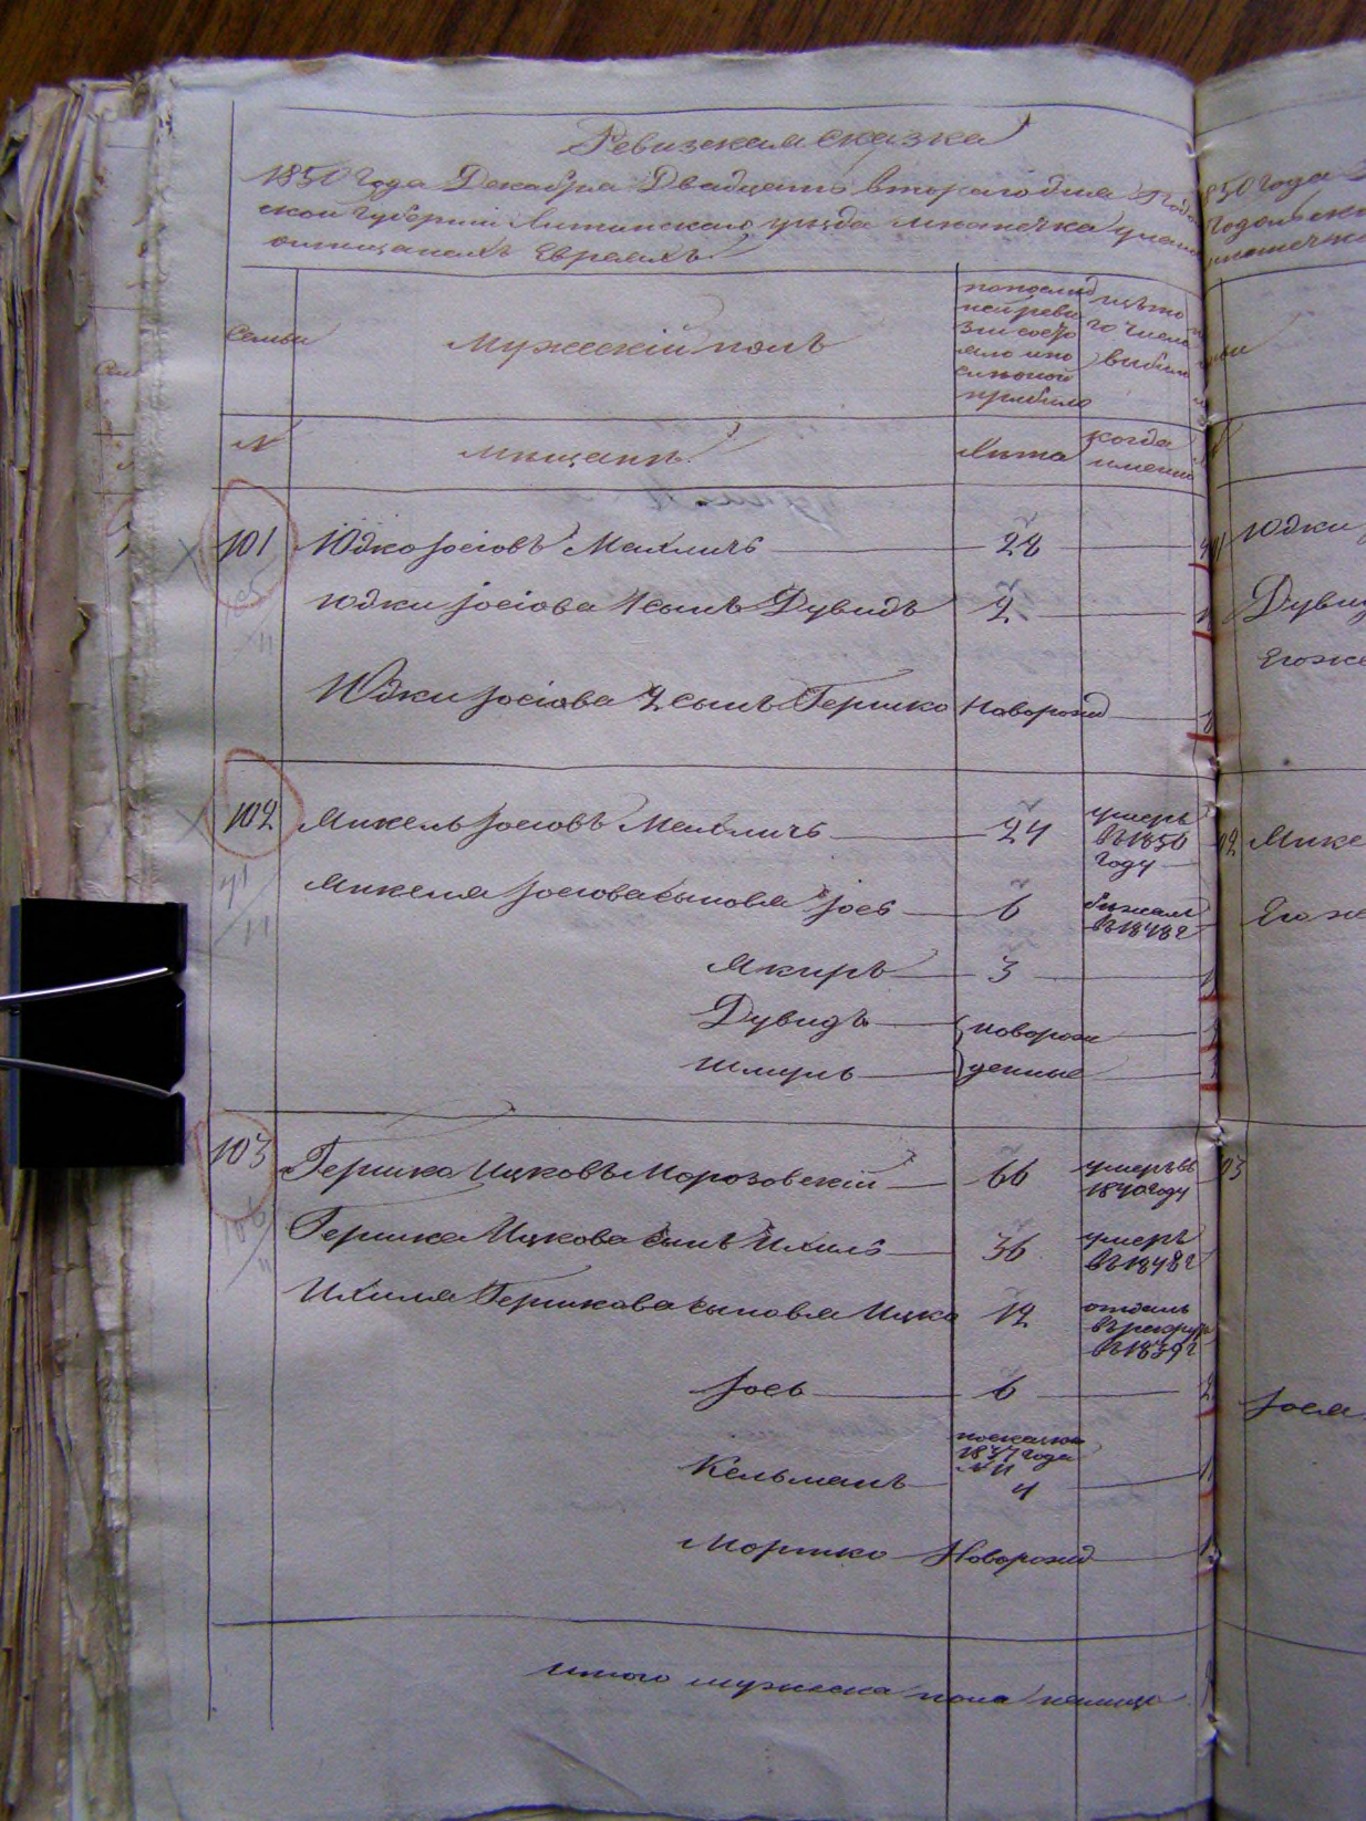 Ревизская сказка
1850 года Декабря Двадцать втораго дня Подоль
ской губернии Литинскаго уезда местечка
о мещанахъ Евреяхъ
Семьи
Мужескій полъ
по послед
ней реви
зіи состо
яло и по
сле оной
прибыло
изъ то
го числа
выбыло
№
Мещане
Лета
когда
именно
101 Юдко Іосіовъ Махличъ 28
Юдки Іосіова 1 сынъ Дувидъ 2
Юдки Іосіова 2 сынъ Гершко Новорожд
102 Микель Іосіовъ Махличъ 24 умеръ
въ 1850
году
Микеля Іосіова сыновья Іось 6 бежалъ
въ 1848 г
Якиръ 3
Дувидъ новорож
Шмуль денные
103 Гершко Ицковъ Морозовскій 66 умеръ въ
1840 году
Гершка Ицкова сынъ Ихиль 36 умеръ
въ 1848 г
Ихиля Гершкова сыновья Ицко 12 отданъ
въ рекруты
въ 1839 г
Іось 6
по сказке
1837 года
№ 11
Кельманъ 4
Мошко Новорожд
Итого мужеска пола налицо
1850 года
Подольск
местечк
Юдки
Дувид
Его же
102 Мике
Его же
103
Іося